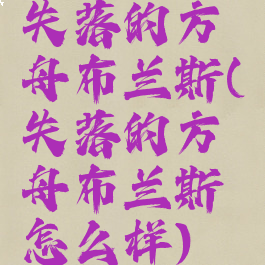 失落的方
舟布兰斯(
失落的方
舟布兰斯
怎么样)